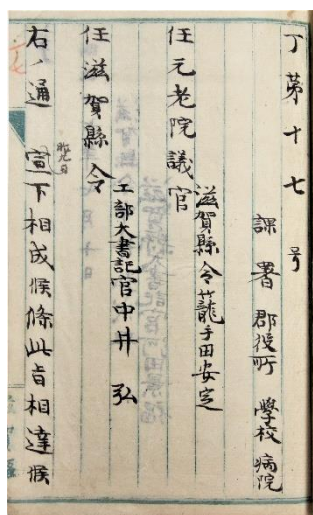 丁第十七号
課署 郡役所 学校 病院
滋賀縣令籠手田安定
任元老院議官
工部大書記官中井弘
任滋賀縣令
昨九日
右ノ通宣下相成候條此旨相達候